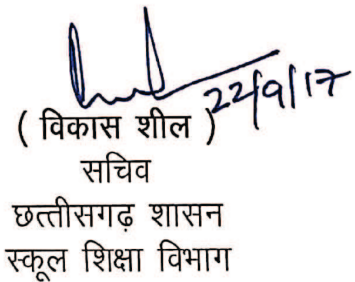 22/9/17
( विकास शील )
सचिव
छत्तीसगढ़ शासन
स्कूल शिक्षा विभाग